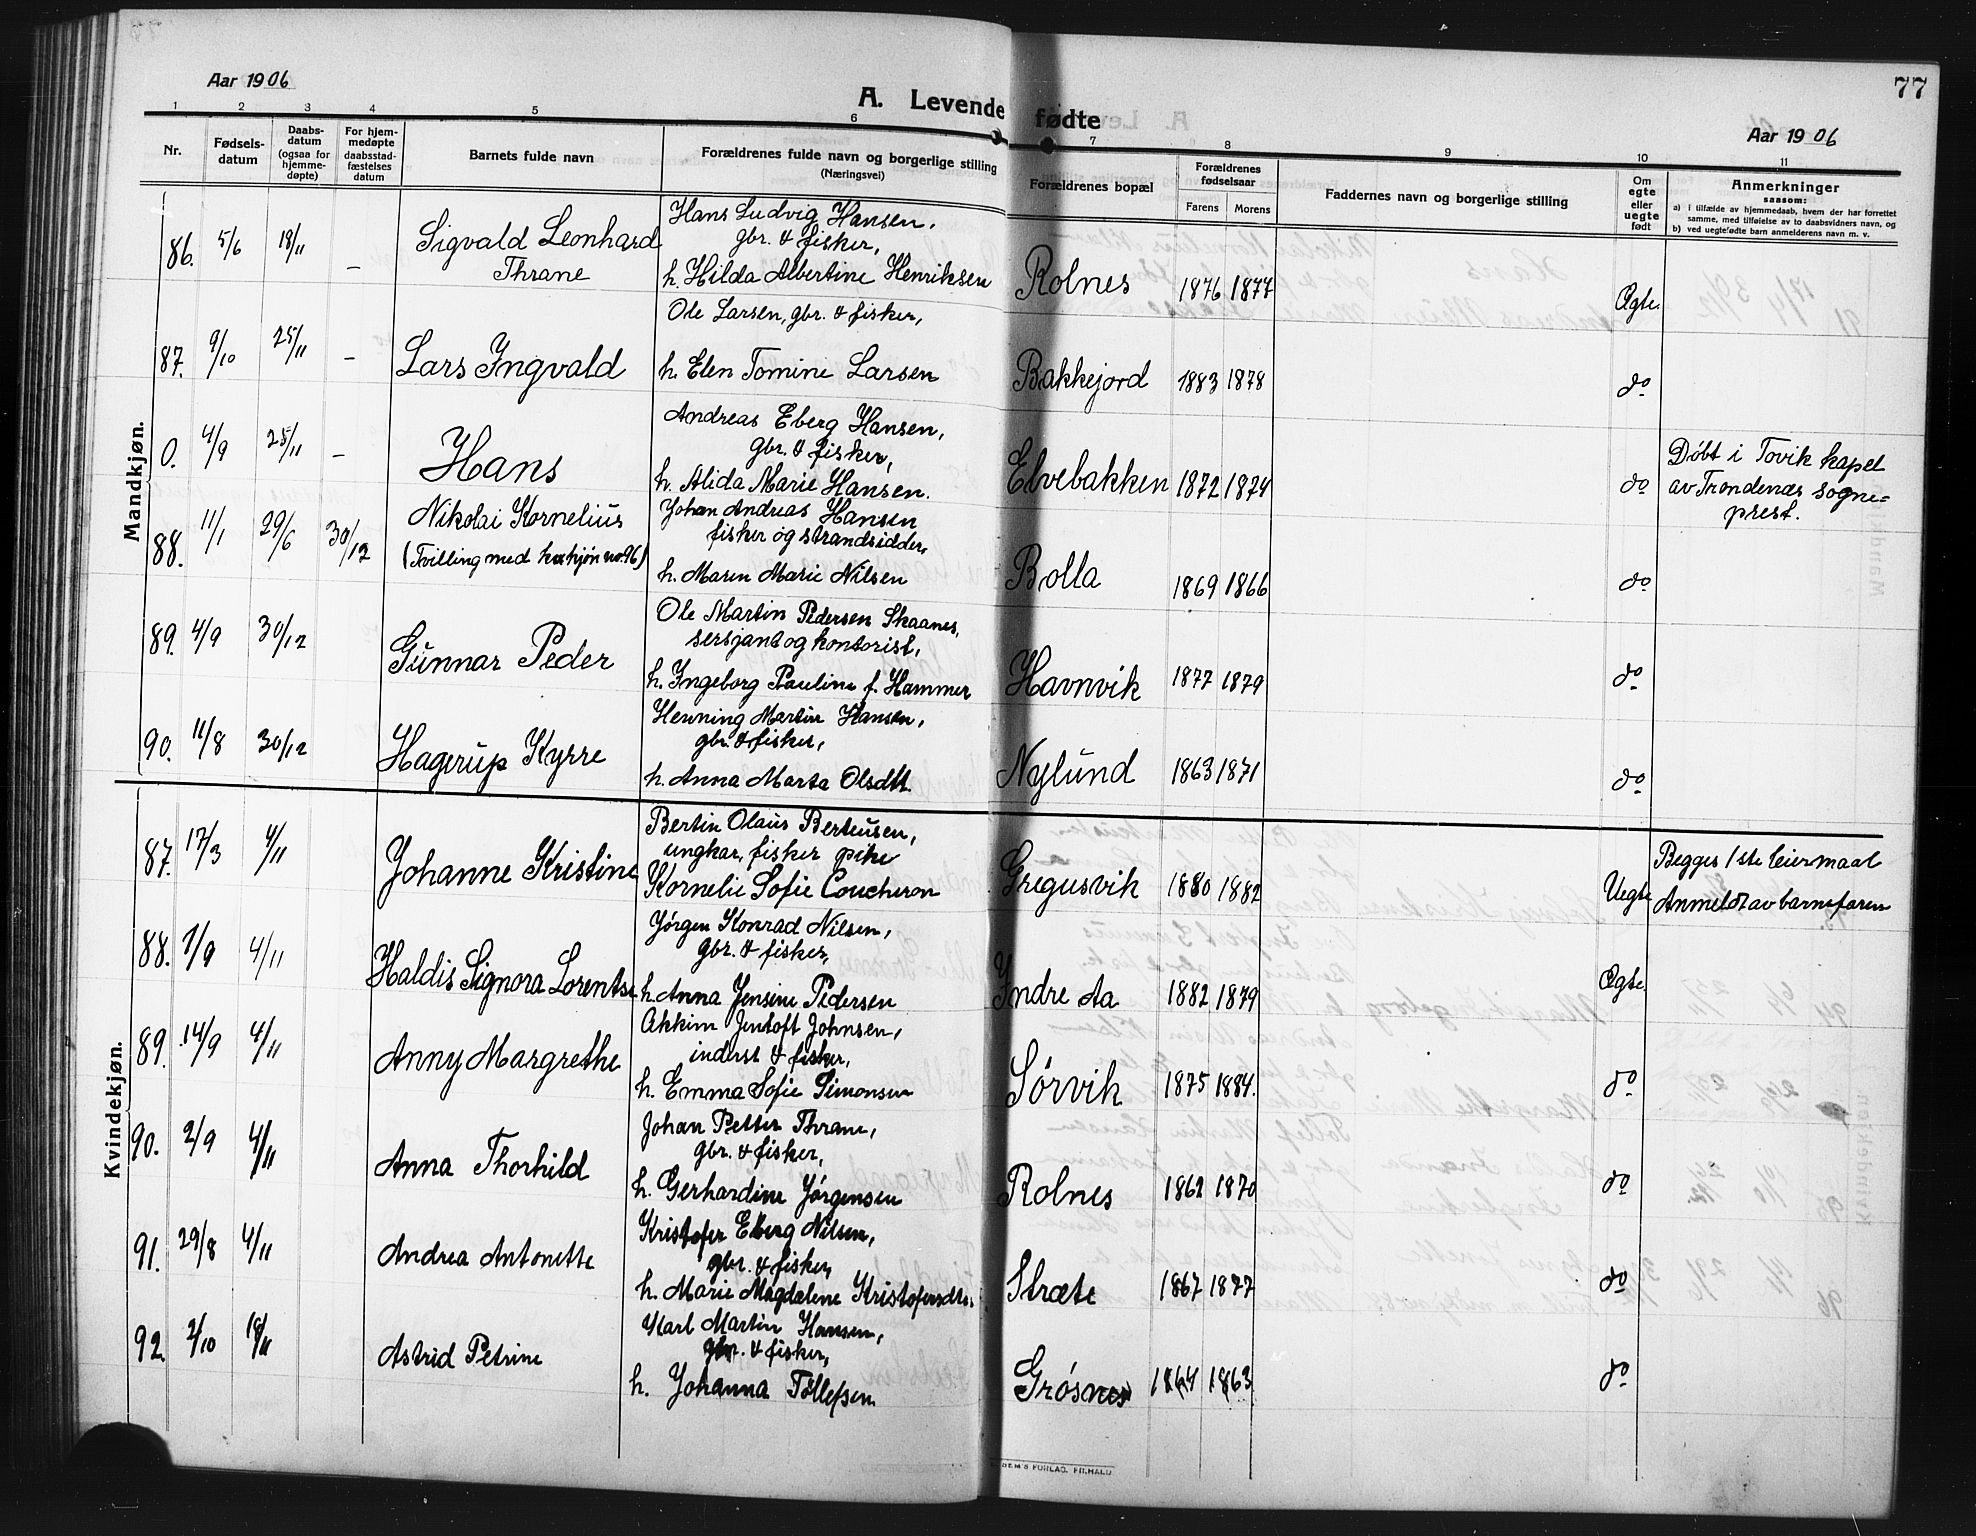 77
Aar 1906
A. Levende fødte
Aar 1906
1 2 3 4 5 6 7 8 9 10 11
Nr.
Fødsels-
datum
Daabs-
datum
(ogsaa for
hjemme-
døpte)
For hjem-
medøpte
daabsstad-
fæstelses
datum
Barnets fulde navn
Forældrenes fulde navn og borgerlige stilling
(Næringsvei)
Forældrenes bopæl
Forældrenes
fødselsaar
Farens Morens
Faddernes navn og borgerlige stilling
Om
egte
eller
uegte
født
Anmerkninger
saasom:
a) i tilfælde av hjemmedaab, hvem der har forrettet
samme, med tilføielse av to daabsvidners navn, og
b) ved uegtefødte barn anmelderens navn m. v.
Mandkjøn.
86. 5/6 18/11 – Sigvald Leonhard
Thrane
Hans Ludvig Hansen,
gbr. & fisker,
h. Hilda Albertine Henriksen
Rolnes 1876 1877 Ægte.
87. 9/10 25/11 – Lars Ingvald
Ole Larsen, gbr. & fisker,
h. Elen Tomine Larsen
Bakkejord 1883 1878 do
0. 4/9 25/11 – Hans
Andreas Eberg Hansen,
gbr. & fisker,
h. Alida Marie Hansen.
Elvebakken 1872 1874 do
Døbt i Tovik kapel
av Trondenæs sogne-
prest.
88. 11/1 29/6 30/12 Nikolai Kornelius
(Tvilling med kvkjøn no. 96)
Johan Andreas Hansen
fisker og strandsidder,
h. Maren Marie Nilsen
Bolla 1869 1866 do
89. 4/9 30/12 Gunnar Peder
Ole Martin Pedersen Skaanes,
sersjant og kontorist,
h. Ingeborg Pauline f. Hammer
Havnvik 1877 1879 do
90. 11/8 30/12 Hagerup Kyrre
Henning Martin Hansen,
gbr. & fisker,
h. Anna Marta Olsdtt.
Nylund 1863 1871 do
Kvindekjøn.
87. 17/3 4/11 Johanne Kristine
Bertin Olaus Berteusen,
ungkar, fisker pike
Kornelie Sofie Coucheron
Gregusvik 1880 1882 Uegte
Begges 1ste leiermaal
Anmeldt av barnefaren
88. 1/9 4/11 Haldis Signora Lorentse
Jørgen Konrad Nilsen,
gbr. & fisker,
h. Anna Jensine Pedersen
Indre Aa 1882 1879 Ægte.
89. 14/9 4/11 Anny Margrethe
Akkim Jentoft Johnsen,
inderst & fisker,
h. Emma Sofie Simonsen
Sørvik 1875 1884. do
90. 2/9 4/11 Anna Thorhild
Johan Petter Thrane,
gbr. & fisker,
h. Gerhardine Jørgensen
Rolnes 1862 1870 do
91. 29/8 4/11 Andrea Antonette
Kristofer Eberg Nilsen,
gbr. & fisker,
h. Marie Magdalene Kristofersdtr.
Stræte 1867 1877 do
92. 2/10 18/11 Astrid Petrine
Karl Martin Hansen,
gbr. & fisker,
h. Johanna Tollefsen
Grøsnes 1864 1863 do
SEM'S FORLAG. FR.HALD